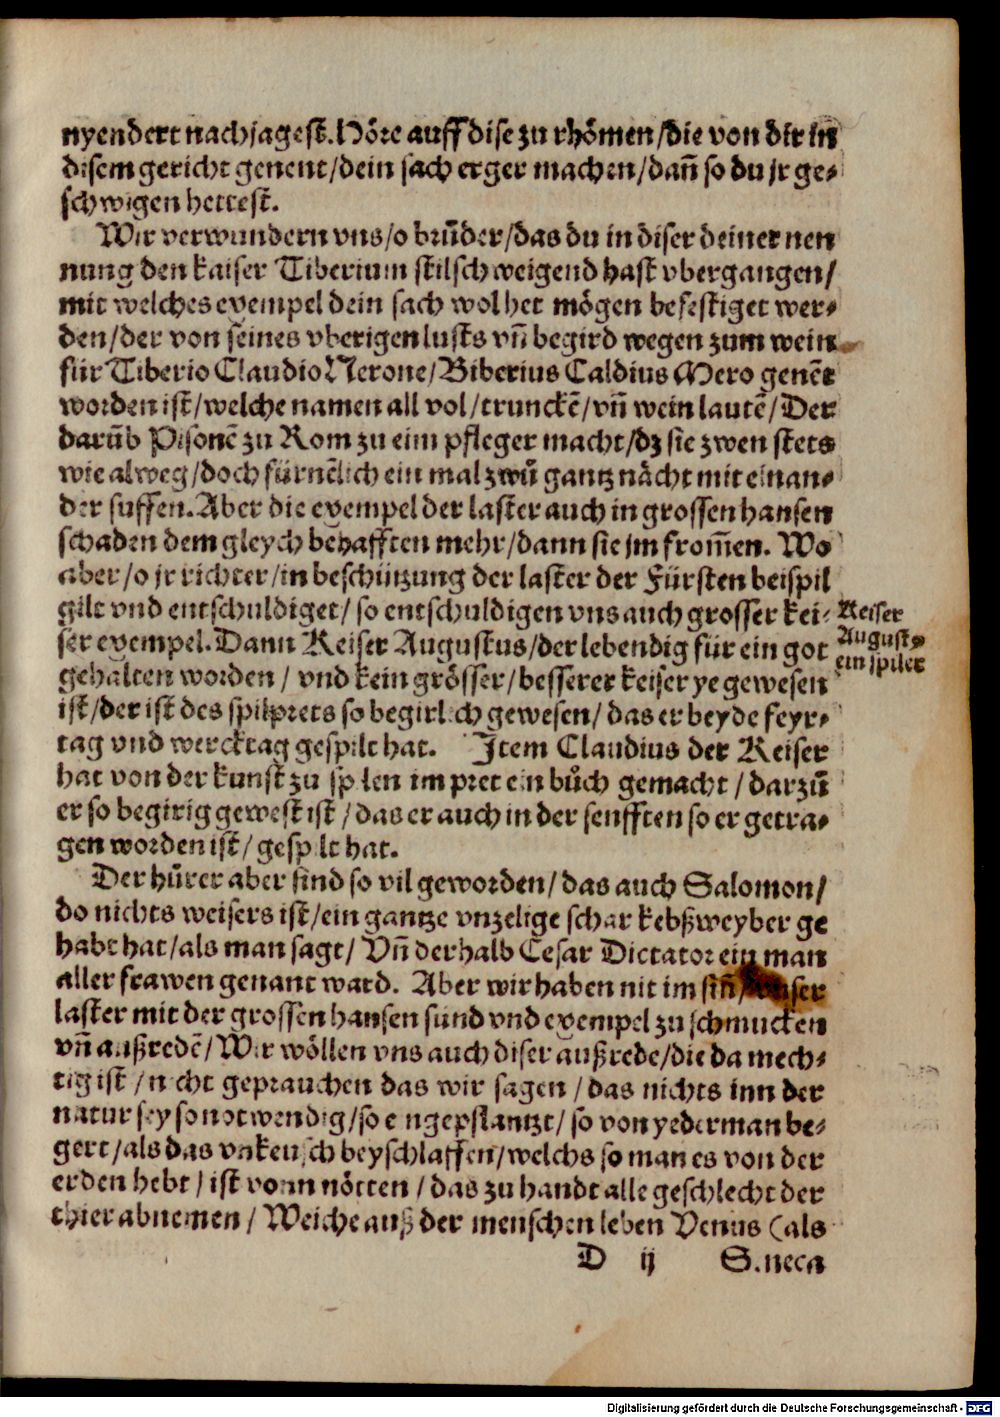 nyendert nachjagest. Höre auff dise zu rhömen/die von dir in
disem gericht genent/dein sach erger machen/dañ so du jr ge-
schwigen hettest.
Wir verwundern vns/o brůder/das du in diser deiner nen
nung den kaiser Tiberium stilschweigend hast vbergangen/
mit welches exempel dein sach wol het mögen befestiget wer-
den/der von seines vberigen lusts vñ begird wegen zum wein
für Tiberio Claudio Nerone/Biberius Caldius Mero genẽt
worden ist/welche namen all vol/trunckẽ/vñ wein lautẽ/Der
darũb Pisonẽ zu Rom zu eim pfleger macht/dz sie zwen stets
wie alweg/doch fürnẽlich ein mal zwů gantz nächt mit einan-
der suffen. Aber die exempel der laster auch in grossen hansen
schaden dem gleych behafften mehr/dann sie jm from̃en. Wo
aber/o jr richter/in beschützung der laster der Fürsten beispil
gilt vnd entschuldiget/so entschuldigen vns auch grosser kei-
ser exempel. Dann Keiser Augustus/der lebendig für ein got
gehalten worden/vnd kein grösser/besserer keiser ye gewesen
ist/der ist des spilprets so begirlich gewesen/das er beyde feyr-
tag vnd wercktag gespilt hat. Item Claudius der Keiser
hat von der kunst zu spilen im pret ein bůch gemacht/darzů
er so begirig gewest ist/das er auch in der senfften so er getra-
gen worden ist/gespilt hat.
Keiser
August9
ein spiler
Der hůrer aber sind so vil geworden/das auch Salomon/
do nichts weisers ist/ein gantze vnzelige schar kebßweyber ge
habt hat/als man sagt/Vñ derhalb Cesar Dictator ein man
aller frawen genant ward. Aber wir haben nit im siñ/vnser
laster mit der grossen hansen sünd vnd exempel zu schmucken
vñ außredẽ/Wir wöllen vns auch diser außrede/die da mech-
tig ist/nicht geprauchen das wir sagen/das nichts inn der
natur sey so notwendig/so eingepflantzt/so von yederman be-
gert/als das vnkeusch beyschlaffen/welchs so man es von der
erden hebt/ist vonn nötten/das zu handt alle geschlecht der
thier abnemen/Weiche auß der menschen leben Venus (als
D ij Seneca
Digitalisierung gefördert durch die Deutsche Forschungsgemeinschaft - DFG